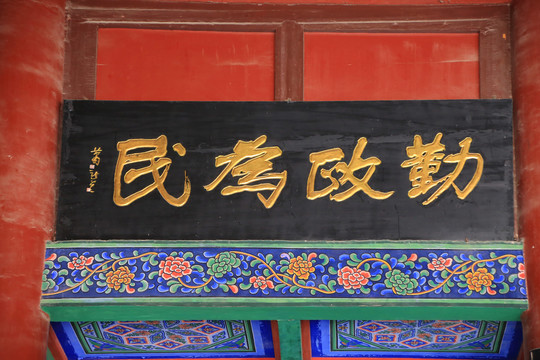 勤政為民